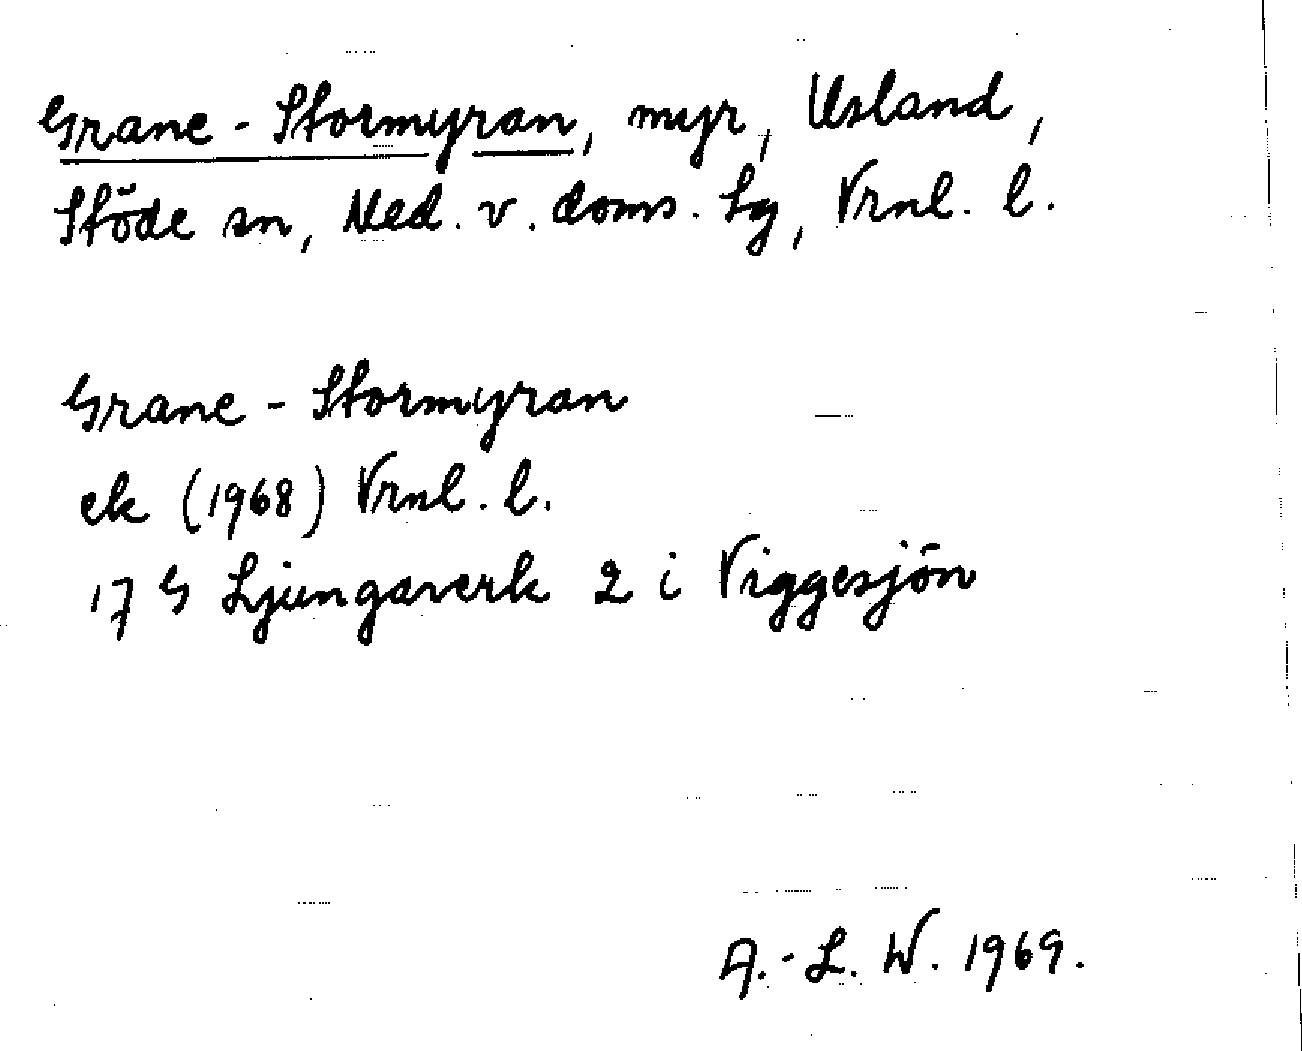 Grane-Stormyran, myr, Usland,
Stöde sn, Med. v. doms. lg, Vrnl. l.
Grane-Stormyran
ek (1968) Vrnl. l.
17 G Ljungaverk 2 i Viggesjön
A.-L. W. 1969.